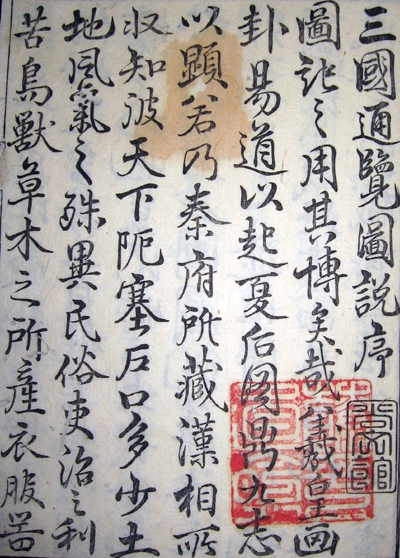 三國通覽圖說序
圖記之用其博矣哉皇画
卦易道以起夏后圖鼎九
以顕若乃秦府所藏漢相所
收知彼天下阨塞戶口多少土
地風氣之殊異民俗吏治之利
苦鳥獸草木之所產衣服噐